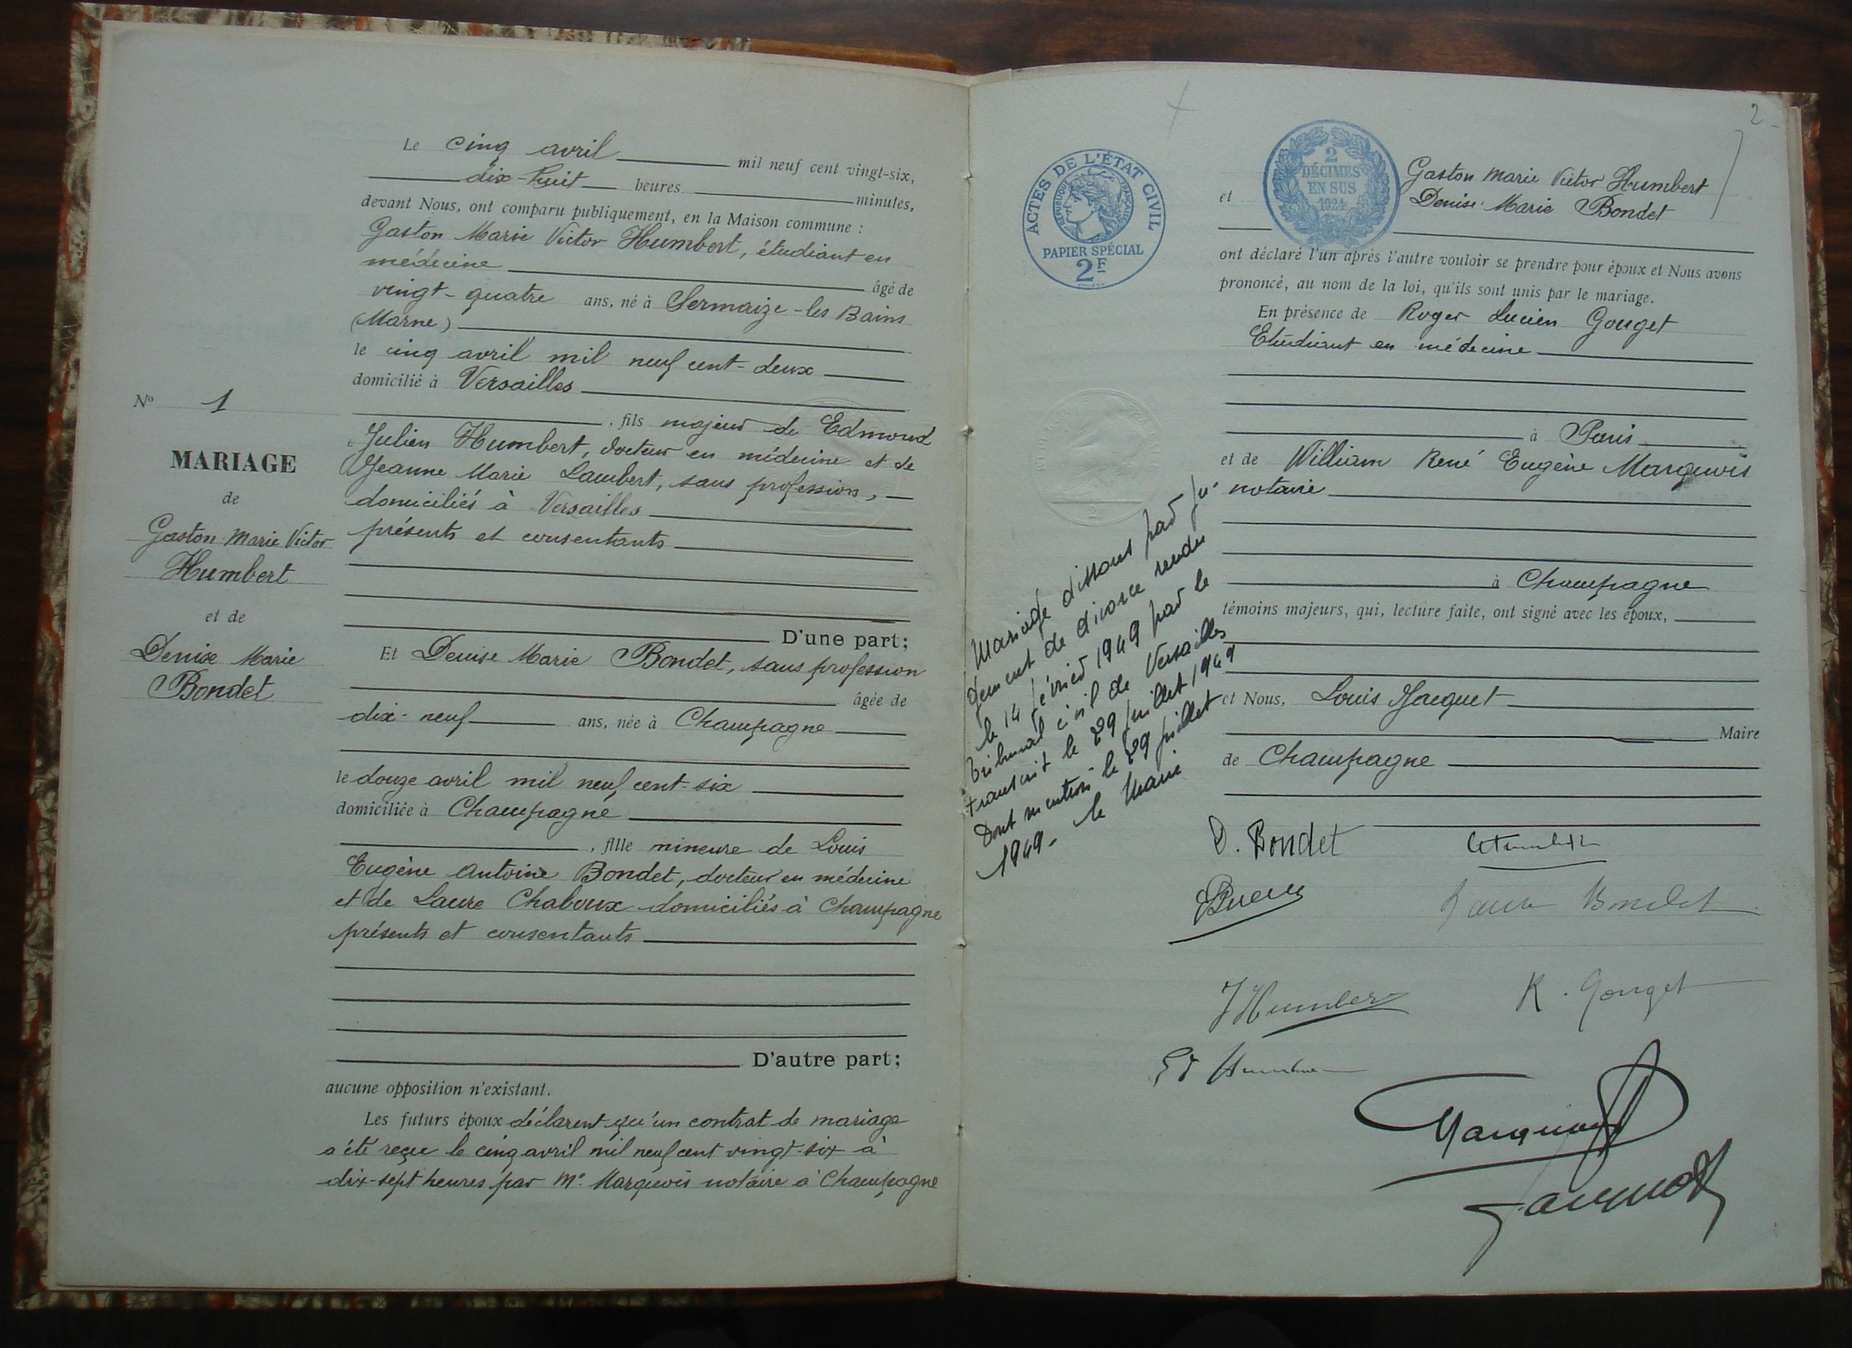 Le cinq avril mil neuf cent vingt-six,
dix-huit heures minutes,
devant Nous, ont comparu publiquement, en la Maison commune :
Gaston Marie Victor Humbert, étudiant en
médecine âgé de
vingt-quatre ans, né à Sermaize-les Bains
(Marne)
le cinq avril mil neuf cent-deux
domicilié à Versailles
, fils majeur de Edmond
Julien Humbert, docteur en médecine et de
Jeanne Marie Lambert, sans profession,
domiciliés à Versailles
présents et consentants
D'une part;
Et Denise Marie Bondet, sans profession
âgée de
dix-neuf ans, née à Champagne
le douze avril mil neuf cent-six
domiciliée à Champagne
, fille mineure de Louis
Eugène Antoine Bondet, docteur en médecine
et de Laure Chaboux domiciliés à Champagne
présents et consentants
D'autre part;
aucune opposition n'existant.
Les futurs époux déclarent qu'un contrat de mariage
a été reçu le cinq avril mil neuf cent vingt-six à
dix-sept heures par Me Marquevis notaire à Champagne
No 1
MARIAGE
de
Gaston Marie Victor
Humbert
et de
Denise Marie
Bondet
2
ACTES DE L'ÉTAT CIVIL
RÉPUBLIQUE FRANÇAISE
PAPIER SPÉCIAL
2F
2
DÉCIMES
EN SUS
1924
Gaston Marie Victor Humbert
et Denise Marie Bondet
ont déclaré l'un après l'autre vouloir se prendre pour époux et Nous avons
prononcé, au nom de la loi, qu'ils sont unis par le mariage.
En présence de Roger Lucien Gouget
Etudiant en médecine
à Paris
et de William René Eugène Marquevis
notaire
à Champagne
témoins majeurs, qui, lecture faite, ont signé avec les époux,
et Nous, Louis Jacquet
Maire
de Champagne
Mariage dissous par ju-
gement de divorce rendu
le 14 février 1949 par le
tribunal civil de Versailles
transcrit le 29 juillet 1949
Dont mention le 29 juillet
1949 - le Maire
D. Bondet
Laure Bondet
J Humbert
R. Gouget
Ed Humbert